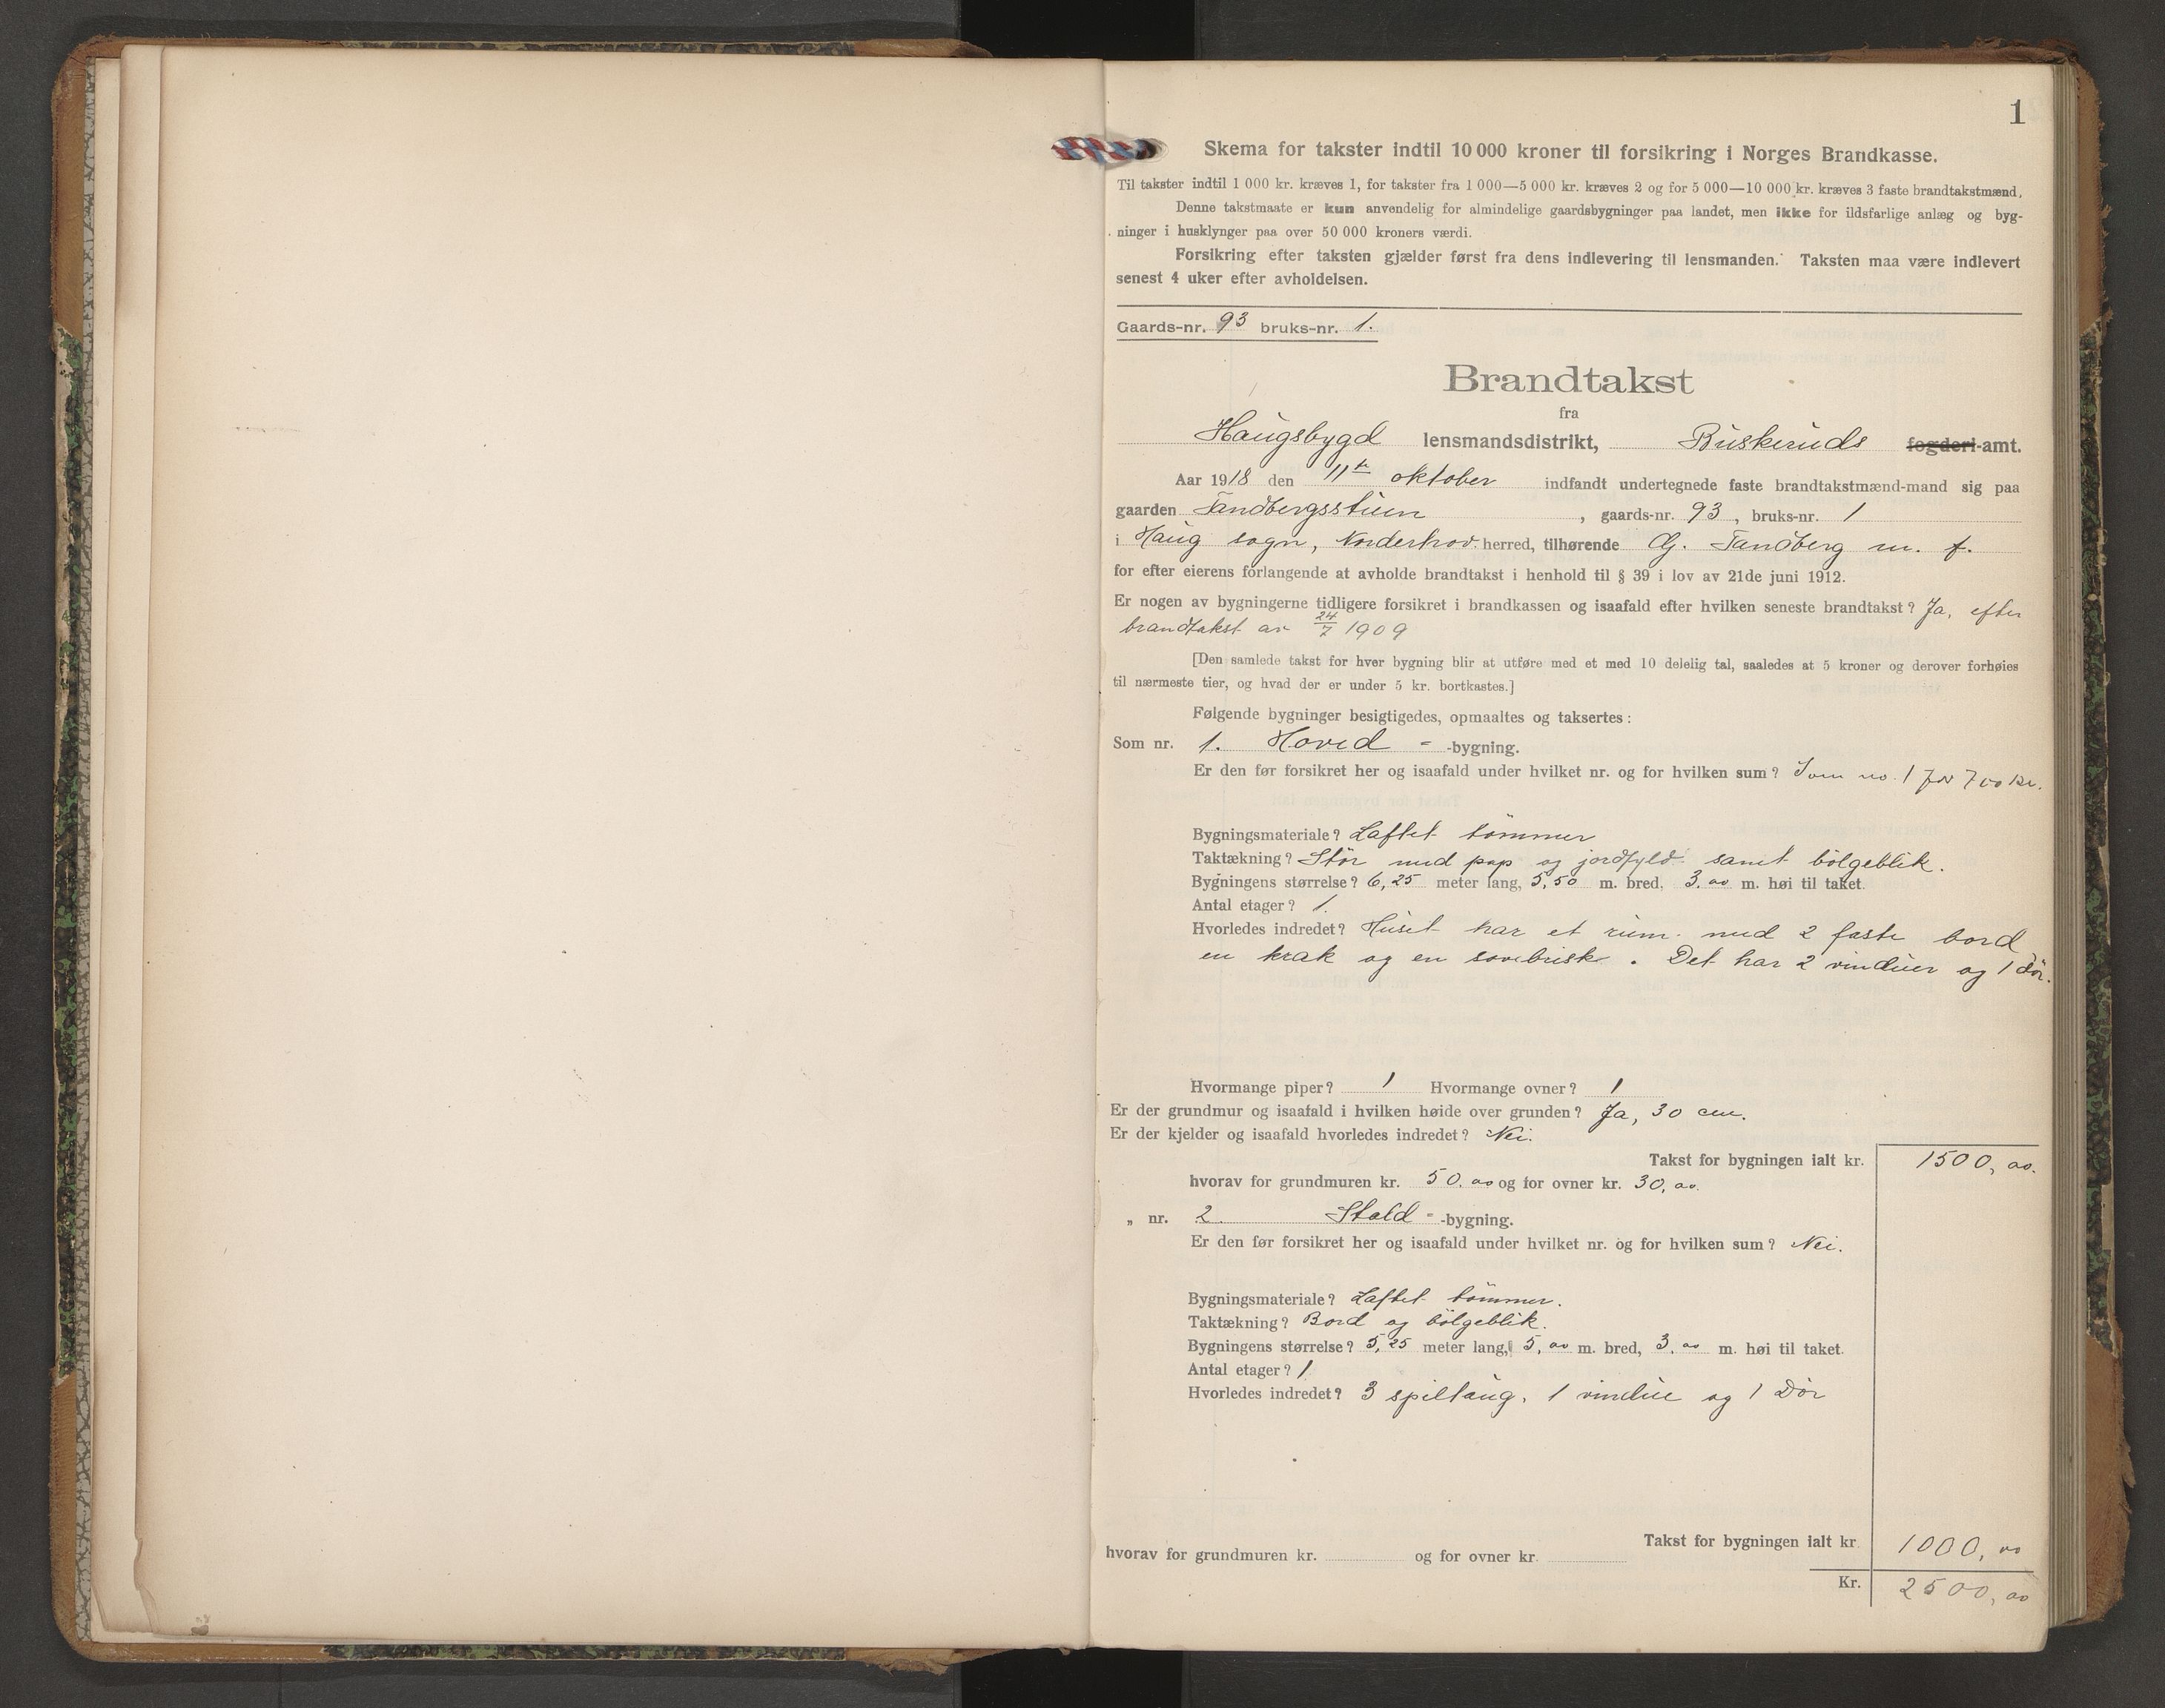 1
Skema for takster indtil 10 000 kroner til forsikring i Norges Brandkasse.
Til takster indtil 1 000 kr. kræves 1, for takster fra 1 000—5 000 kr. kræves 2 og for 5 000—10 000 kr. kræves 3 faste brandtakstmænd.
Denne takstmaate er kun anvendelig for almindelige gaardsbygninger paa landet, men ikke for ildsfarlige anlæg og byg-
ninger i husklynger paa over 50 000 kroners værdi.
Forsikring efter taksten gjælder først fra dens indlevering til lensmanden. Taksten maa være indlevert
senest 4 uker efter avholdelsen.
Gaards-nr. 93 bruks-nr. 1.
Brandtakst
fra
Haugsbygd lensmandsdistrikt, Buskeruds fogderi-amt.
Aar 1918 den 11te oktober indfandt undertegnede faste brandtakstmænd-mand sig paa
gaarden Tandbergsstuen, gaards-nr. 93, bruks-nr. 1
i Haug sogn, Norderhov herred, tilhørende G. Tandberg m. f.
for efter eierens forlangende at avholde brandtakst i henhold til § 39 i lov av 21de juni 1912.
Er nogen av bygningerne tidligere forsikret i brandkassen og isaafald efter hvilken seneste brandtakst? Ja, efter
brandtakst av 24/7 1909
[Den samlede takst for hver bygning blir at utføre med et med 10 delelig tal, saaledes at 5 kroner og derover forhøies
til nærmeste tier, og hvad der er under 5 kr. bortkastes.]
Følgende bygninger besigtigedes, opmaaltes og taksertes:
Som nr. 1. Hoved - -bygning.
Er den før forsikret her og isaafald under hvilket nr. og for hvilken sum? Som no. 1 for 700 kr.
Bygningsmateriale? Laftet tömmer
Taktækning? Stör med pap og jordfyld samt bölgeblik.
Bygningens størrelse? 6,25 meter lang, 5,50 m. bred, 3.00 m. høi til taket.
Antal etager? 1.
Hvorledes indredet? Huset har et rum med 2 faste bord
en krak og en sovebrisk. Det har 2 vinduer og 1 dör.
Hvormange piper? 1 Hvormange ovner? 1
Er der grundmur og isaafald i hvilken høide over grunden? Ja, 30 cm.
Er der kjelder og isaafald hvorledes indredet? Nei.
Takst for bygningen ialt kr. 1500,00.
hvorav for grundmuren kr. 50.00 og for ovner kr. 30,00.
„ nr. 2. Stald - -bygning.
Er den før forsikret her og isaafald under hvilket nr. og for hvilken sum? Nei.
Bygningsmateriale? Laftet tömmer.
Taktækning? Bord og bölgeblik.
Bygningens størrelse? 5,25 meter lang, 5,00 m. bred, 3.00 m. høi til taket.
Antal etager? 1
Hvorledes indredet? 3 spiltaug, 1 vindue og 1 Dör
Takst for bygningen ialt kr. 1000,00
hvorav for grundmuren kr. og for ovner kr.
Kr. 2500,00